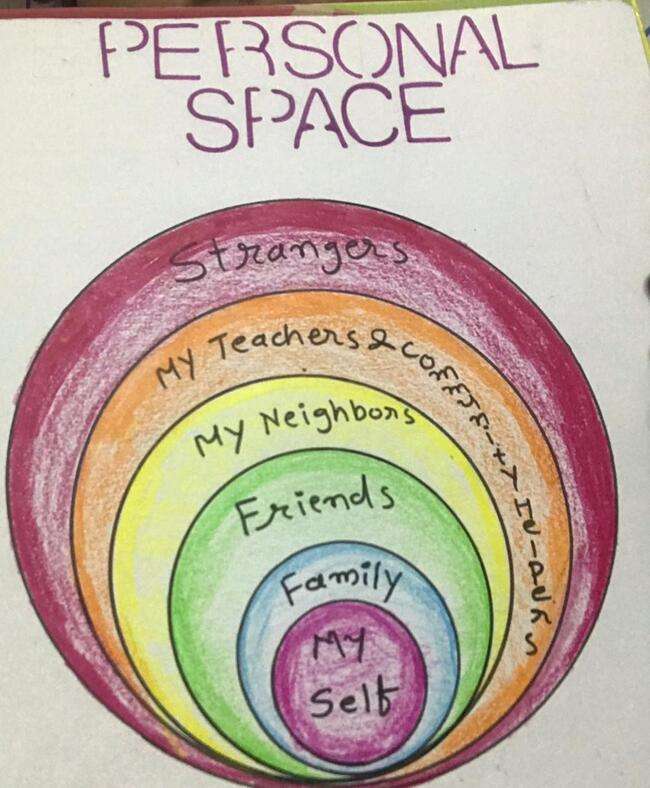 PERSONAL
SPACE
Strangers
My Teachers &
My Neighbors
Friends
Family
My
Self